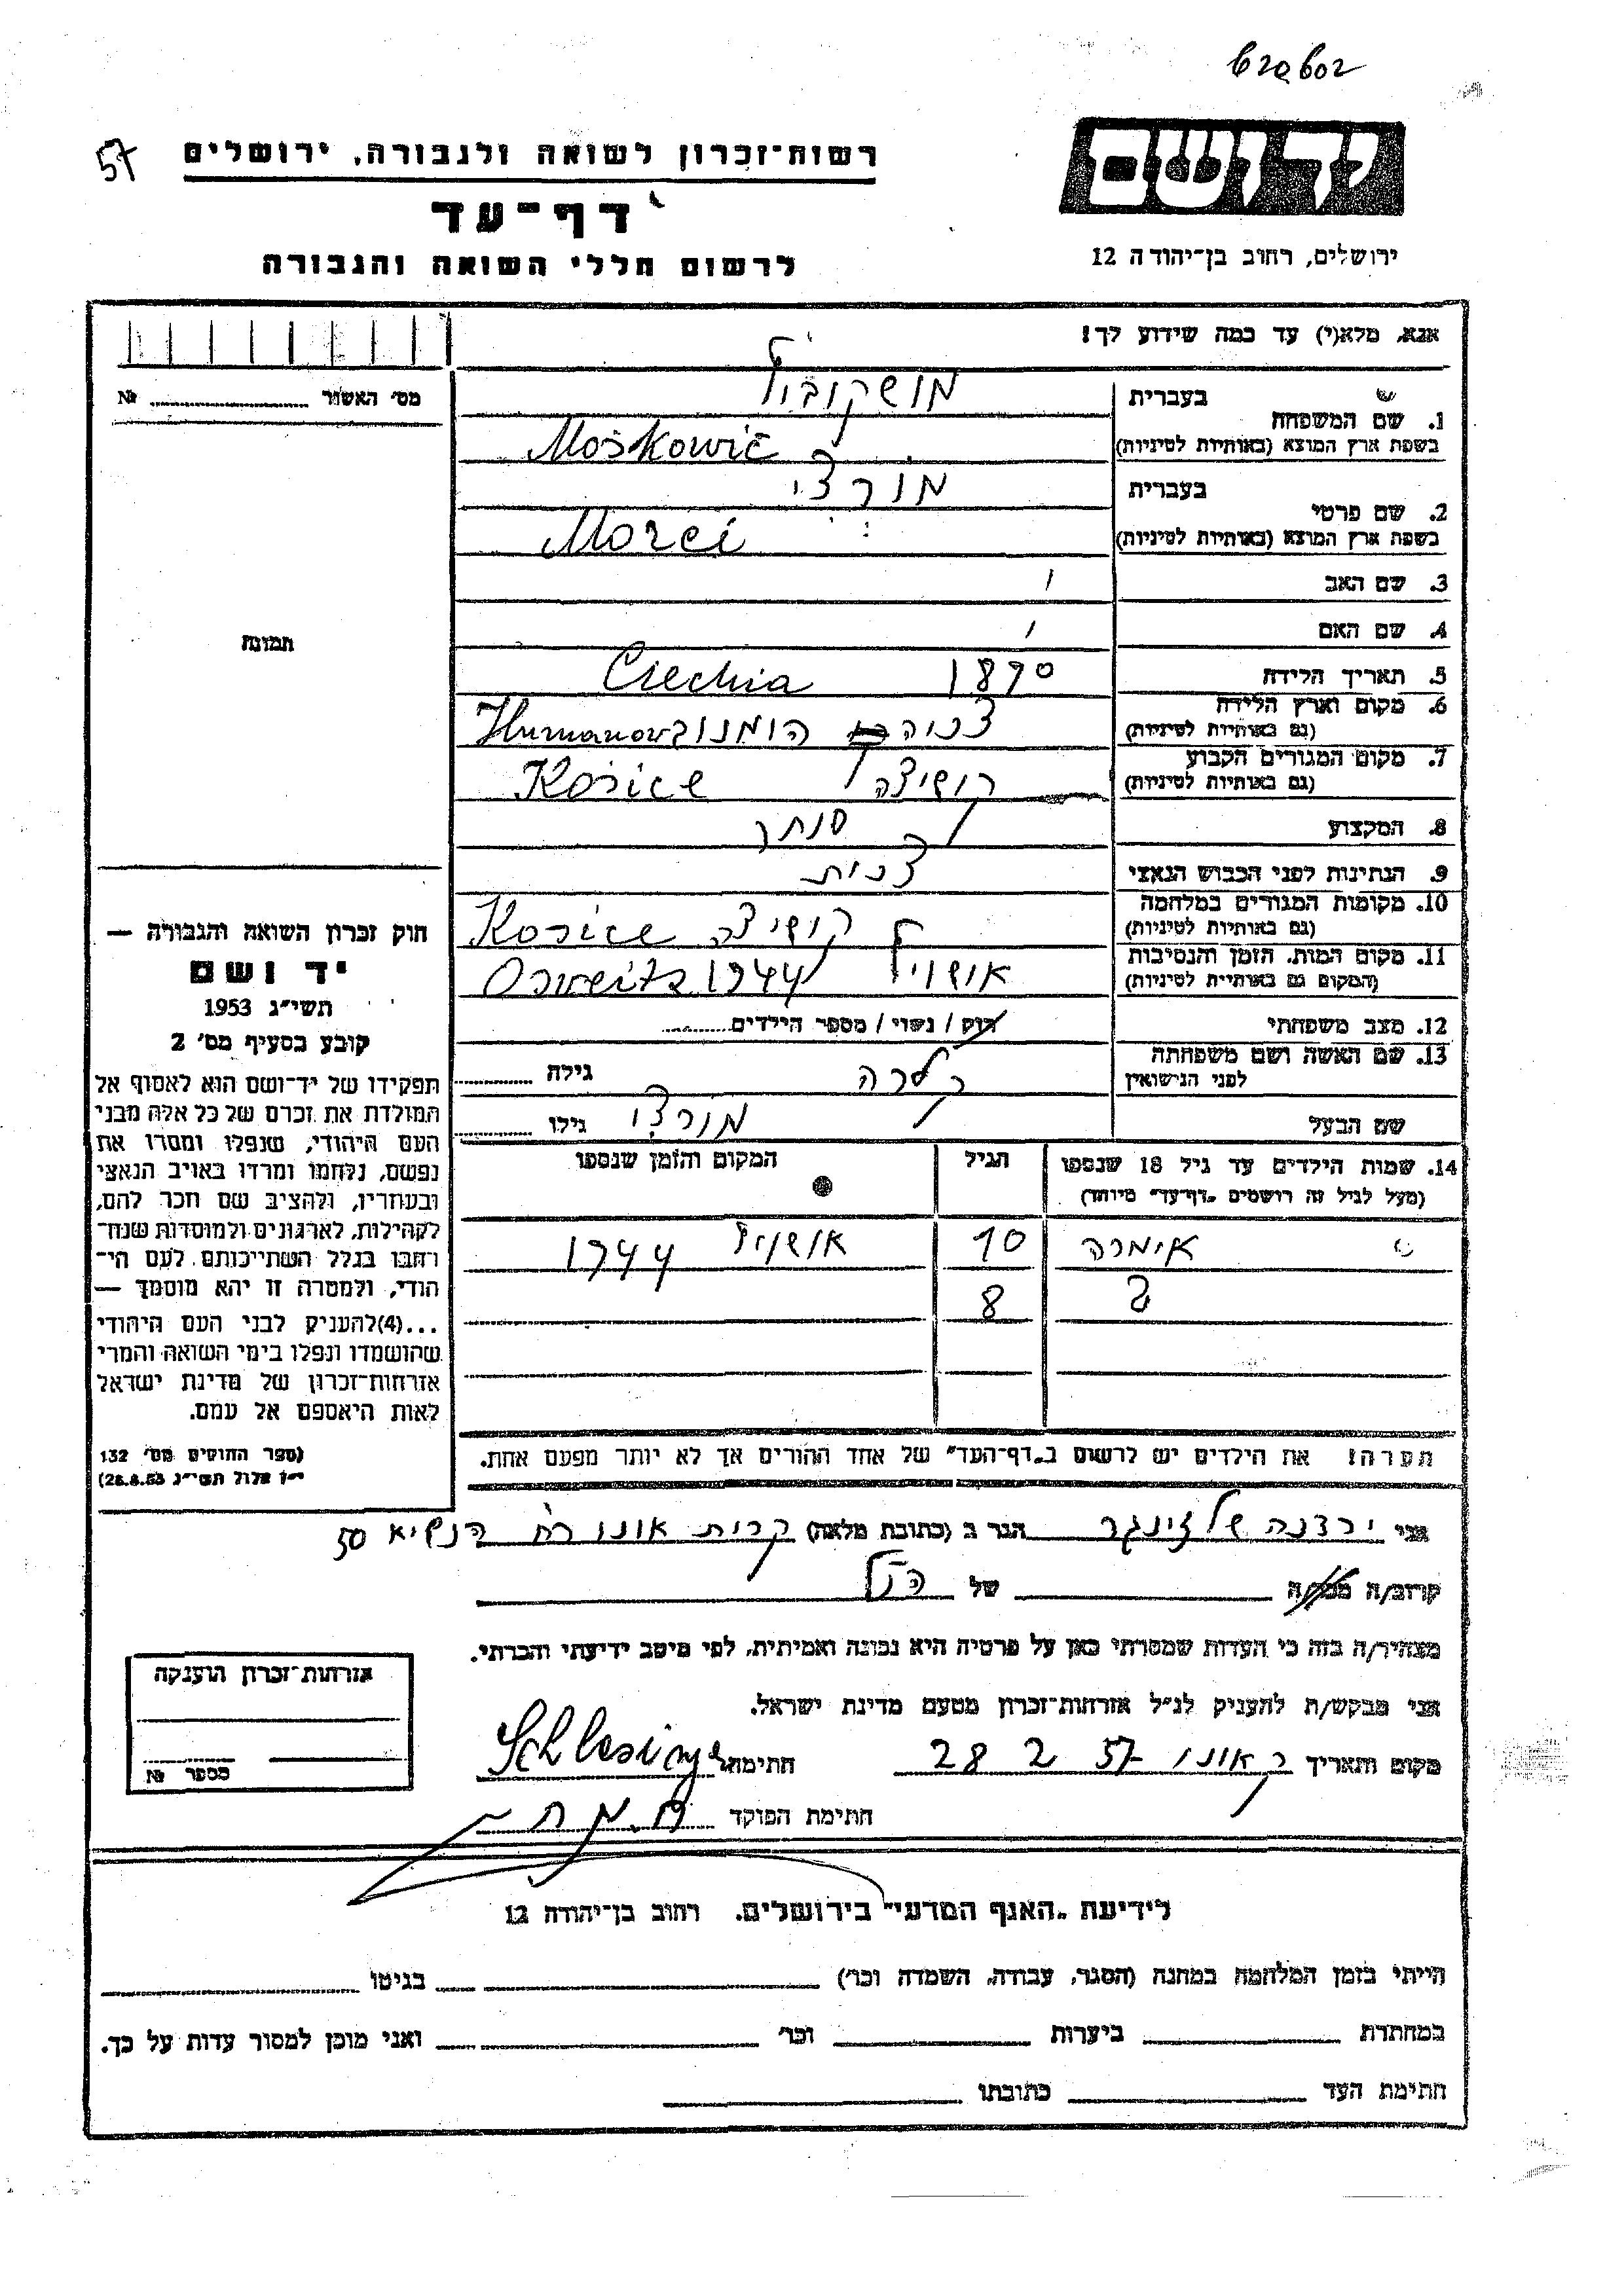 57
רשות־זכרון לשואה ולגבורה, ירושלים
דף־עד
לרשום חללי השואה והגבורה
יד ושם
ירושלים, רחוב בן־יהודה 12
אנא, מלא(י) עד כמה שידוע לך!
מס׳ האשור № 
1. שם המשפחה
בעברית
מושקוביץ
בשפת ארץ המוצא (באותיות לטיניות)
Moškowič
2. שם פרטי
בעברית
מורצי
בשפת ארץ המוצא (באותיות לטיניות)
Morci
3. שם האב
4. שם האם
תמונה
5. תאריך הלידה 1890 Czechia
6. מקום וארץ הלידה
(גם באותיות לטיניות)
הומנוב Humanow
7. מקום המגורים הקבוע
(גם באותיות לטיניות)
קושיצה Košice
8. המקצוע סוחר
9. הנתינות לפני הכבוש הנאצי
10. מקומות המגורים במלחמה
(גם באותיות לטיניות)
קושיצה Košice
11. מקום המות, הזמן והנסיבות
(המקום גם באותיות לטיניות)
אושויץ 1944
12. מצב משפחתי רווק / נשוי / מספר הילדים
13. שם האשה ושם משפחתה
לפני הנישואין
קלרה גילה
שם הבעל מורצי גילו
14. שמות הילדים עד גיל 18 שנספו
(מעל לגיל זה רושמים „דף־עד״ מיוחד)
הגיל
המקום והזמן שנספו
אימרה 10 אושויץ 1944
8
הערה! את הילדים יש לרשום ב„דף־העד״ של אחד ההורים אך לא יותר מפעם אחת.
חוק זכרון השואה והגבורה —
יד ושם
תשי״ג 1953
קובע בסעיף מס׳ 2
תפקידו של יד־ושם הוא לאסוף אל
המולדת את זכרם של כל אלה מבני
העם היהודי, שנפלו ומסרו את
נפשם, נלחמו ומרדו באויב הנאצי
ובעוזריו, ולהציב שם וזכר להם,
לקהילות, לארגונים ולמוסדות שנח־
רבו בגלל השתייכותם לעם הי־
הודי, ולמטרה זו יהא מוסמך —
...(4) להעניק לבני העם היהודי
שהושמדו ונפלו בימי השואה והמרי
אזרחות־זכרון של מדינת ישראל
לאות היאספם אל עמם.
(ספר החוקים מס׳ 132
י״ז אלול תשי״ג 28.8.53)
אני ירדנה שלזינגר הגר ב (כתובת מלאה) קרית אונו רח הנשיא 50
קרוב/ה מכר/ה של הנ״ל
מצהיר/ה בזה כי העדות שמסרתי כאן על פרטיה היא נכונה ואמיתית, לפי מיטב ידיעתי והכרתי.
אני מבקש/ת להעניק לנ״ל אזרחות־זכרון מטעם מדינת ישראל.
מקום ותאריך ק אונו 28 2 57 חתימה Schlesinger
חתימת הפוקד
אזרחות־זכרון הוענקה
מספר №
לידיעת „האגף המדעי״ בירושלים, רחוב בן־יהודה 12
הייתי בזמן המלחמה במחנה (הסגר, עבודה, השמדה וכר׳) בגיטו
במחתרת ביערות וכר׳ ואני מוכן למסור עדות על כך.
חתימת העד כתובתו